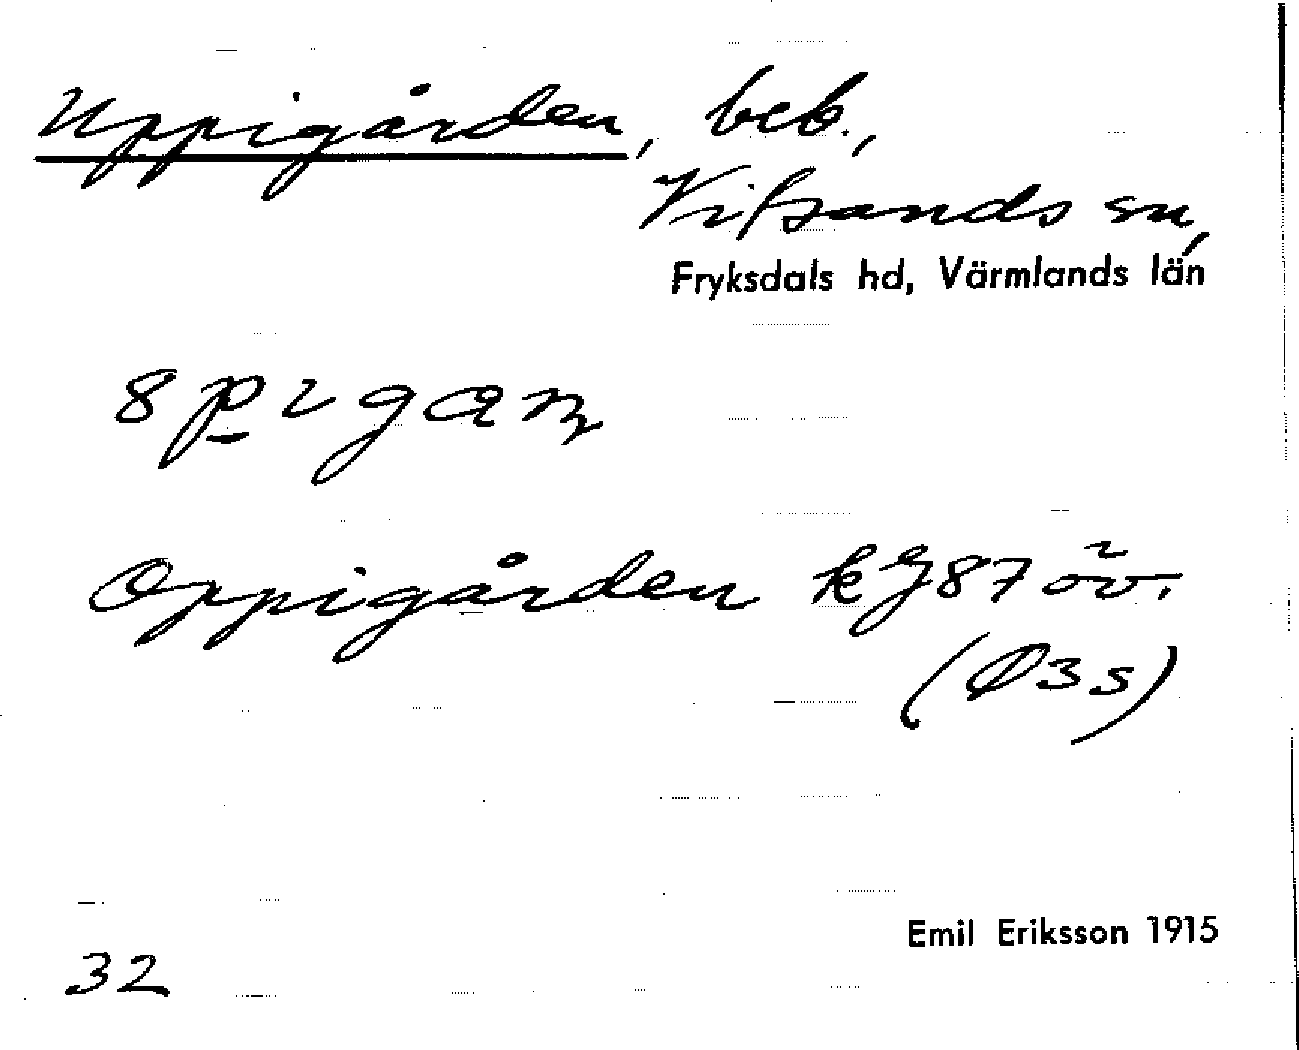 Uppigården, beb.,
Vitsands sn,
Fryksdals hd, Värmlands län
Oppigården kJ87 öv.
(Ø3s)
Emil Eriksson 1915
32